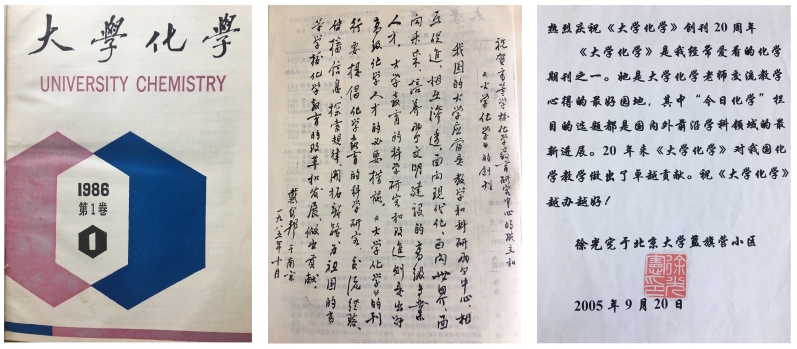 大學化學
UNIVERSITY CHEMISTRY
1986
第1卷
1
祝贺高等学校化学教育研究中心的成立和
《大学化学》的创刊
我国的大学应当是教学和科研两个中心，相
互促进，相互渗透，面向现代化，面向世界，面
向未来，培养两个文明建设的高级专业
人才。大学教育的科学研究和改进则是出
高级化学人才的必要措施。《大学化学》的刊
行要提倡化学教育的科学研究，交流经验，
传播信息，探索规律，开拓新路，为祖国的高
等学校化学教育的改革和发展，做出贡献。
戴安邦于南京
一九八五年十月
热烈庆祝《大学化学》创刊20周年
《大学化学》是我经常爱看的化学
期刊之一。她是大学化学老师交流教学
心得的最好园地，其中“今日化学”栏
目的选题都是国内外前沿学科领域的最
新进展。20年来《大学化学》对我国化
学教学做出了卓越贡献。祝《大学化学》
越办越好！
徐光宪于北京大学蓝旗营小区
徐光憲印
2005年9月20日